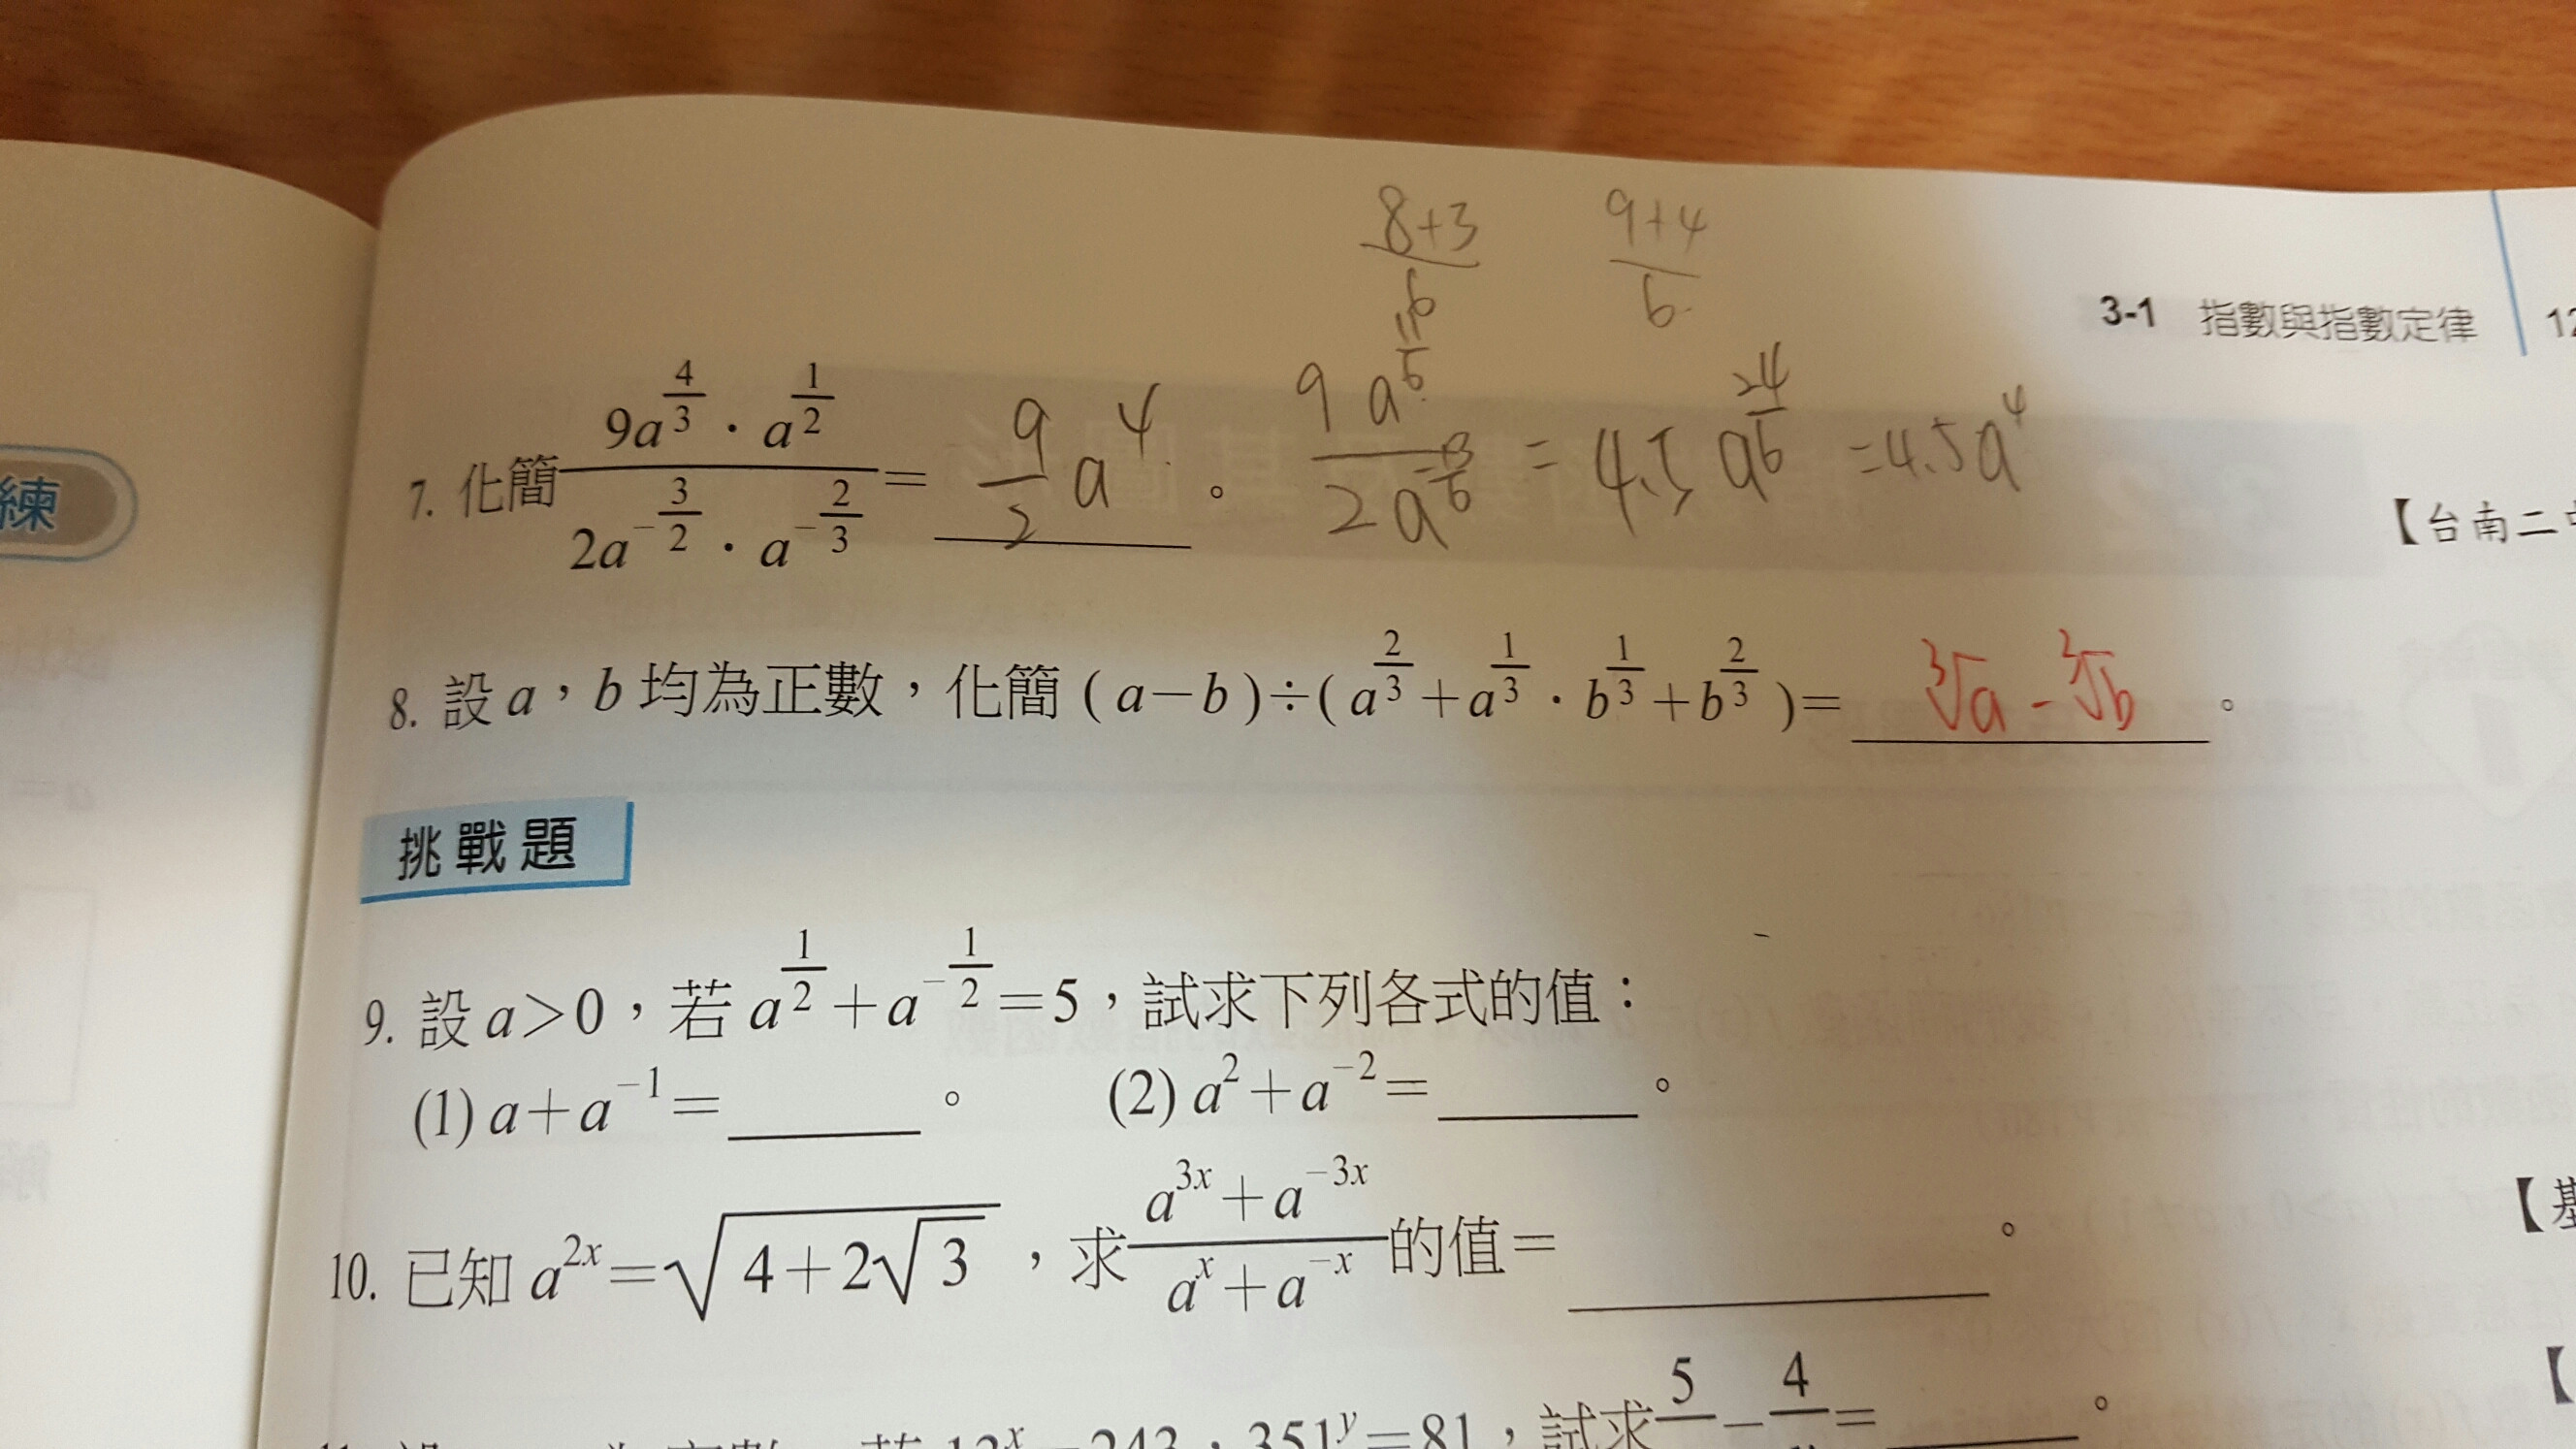 8+3/6 9+4/6
3-1 指數與指數定律 12
練
7. 化簡 9a^(4/3)·a^(1/2) / 2a^(-3/2)·a^(-2/3) = 9/2 a^4 。 9a^(11/6) / 2a^(-13/6) = 4.5a^(24/6) = 4.5a^4
【台南二中
8. 設 a，b 均為正數，化簡 (a－b)÷(a^(2/3)＋a^(1/3)·b^(1/3)＋b^(2/3))＝ ∛a - ∛b 。
挑戰題
9. 設 a＞0，若 a^(1/2)＋a^(-1/2)＝5，試求下列各式的值：
(1) a＋a^(-1)＝______。 (2) a^2＋a^(-2)＝______。
10. 已知 a^(2x)＝√(4＋2√3)，求 (a^(3x)＋a^(-3x))/(a^x＋a^(-x)) 的值＝______。
【基
351^y＝81，試求 5/ － 4/ ＝______。
【